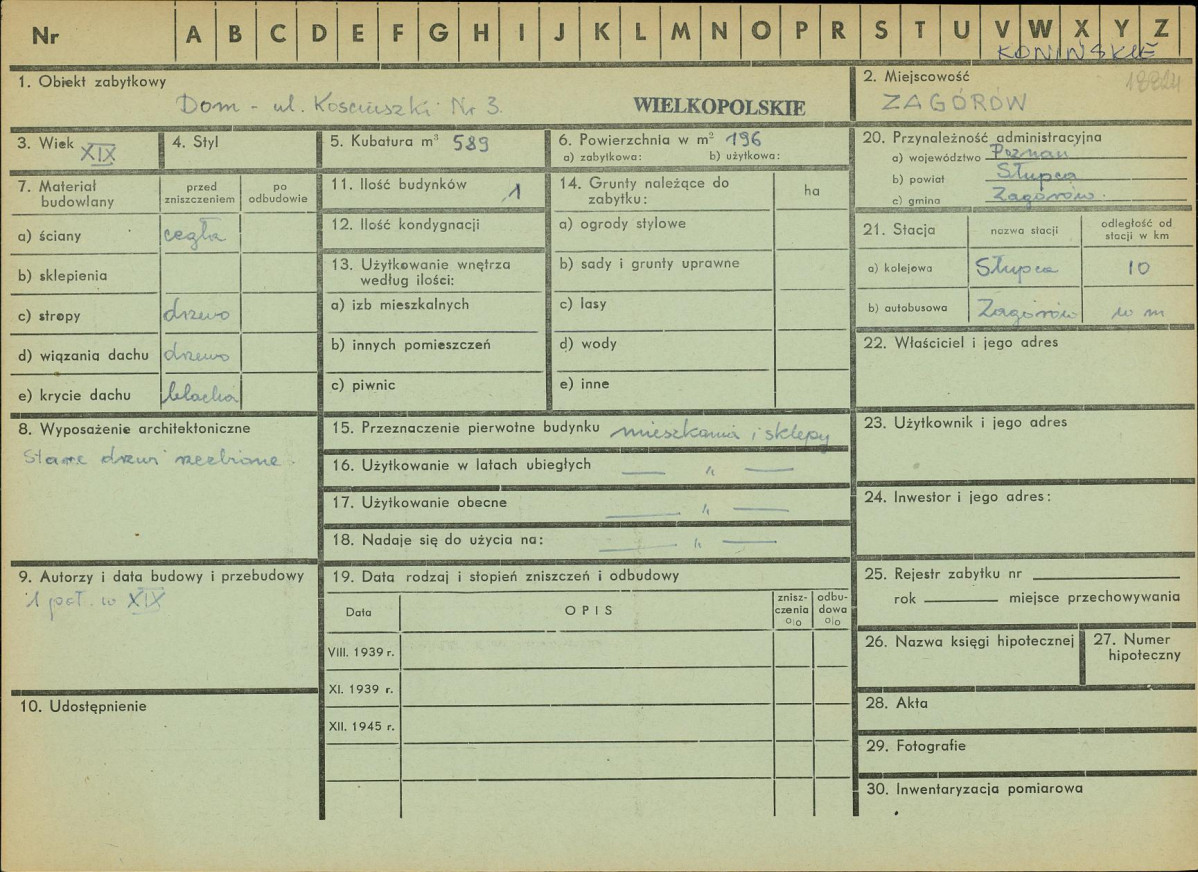 Nr A B C D E F G H I J K L M N O P R S T U V W X Y Z
KONIŃSKIE
1. Obiekt zabytkowy
Dom - ul. Kosciuszki Nr 3.
WIELKOPOLSKIE
2. Miejscowość
18824
ZAGÓRÓW
3. Wiek XIX
4. Styl
5. Kubatura m³ 589
6. Powierzchnia w m² 196
a) zabytkowa: b) użytkowa:
7. Materiał budowlany
przed zniszczeniem
po odbudowie
a) ściany cegła
b) sklepienia
c) stropy drzewo
d) wiązania dachu drzewo
e) krycie dachu blacha
8. Wyposażenie architektoniczne
Stare drzwi rzeźbione.
9. Autorzy i data budowy i przebudowy
1 poł. w XIX
10. Udostępnienie
11. Ilość budynków 1
12. Ilość kondygnacji
13. Użytkowanie wnętrza
według ilości:
a) izb mieszkalnych
b) innych pomieszczeń
c) piwnic
14. Grunty należące do
zabytku:
ha
a) ogrody stylowe
b) sady i grunty uprawne
c) lasy
d) wody
e) inne
15. Przeznaczenie pierwotne budynku mieszkania i sklepy
16. Użytkowanie w latach ubiegłych — „ —
17. Użytkowanie obecne — „ —
18. Nadaje się do użycia na: — „ —
19. Data rodzaj i stopień zniszczeń i odbudowy
Data
OPIS
znisz-
czenia
o/o
odbu-
dowa
o/o
VIII. 1939 r.
XI. 1939 r.
XII. 1945 r.
20. Przynależność administracyjna
a) województwo Poznań
b) powiat Słupca
c) gmina Zagórów.
21. Stacja
nazwa stacji
odległość od
stacji w km
a) kolejowa Słupca 10
b) autobusowa Zagórów w m
22. Właściciel i jego adres
23. Użytkownik i jego adres
24. Inwestor i jego adres:
25. Rejestr zabytku nr
rok miejsce przechowywania
26. Nazwa księgi hipotecznej
27. Numer
hipoteczny
28. Akta
29. Fotografie
30. Inwentaryzacja pomiarowa